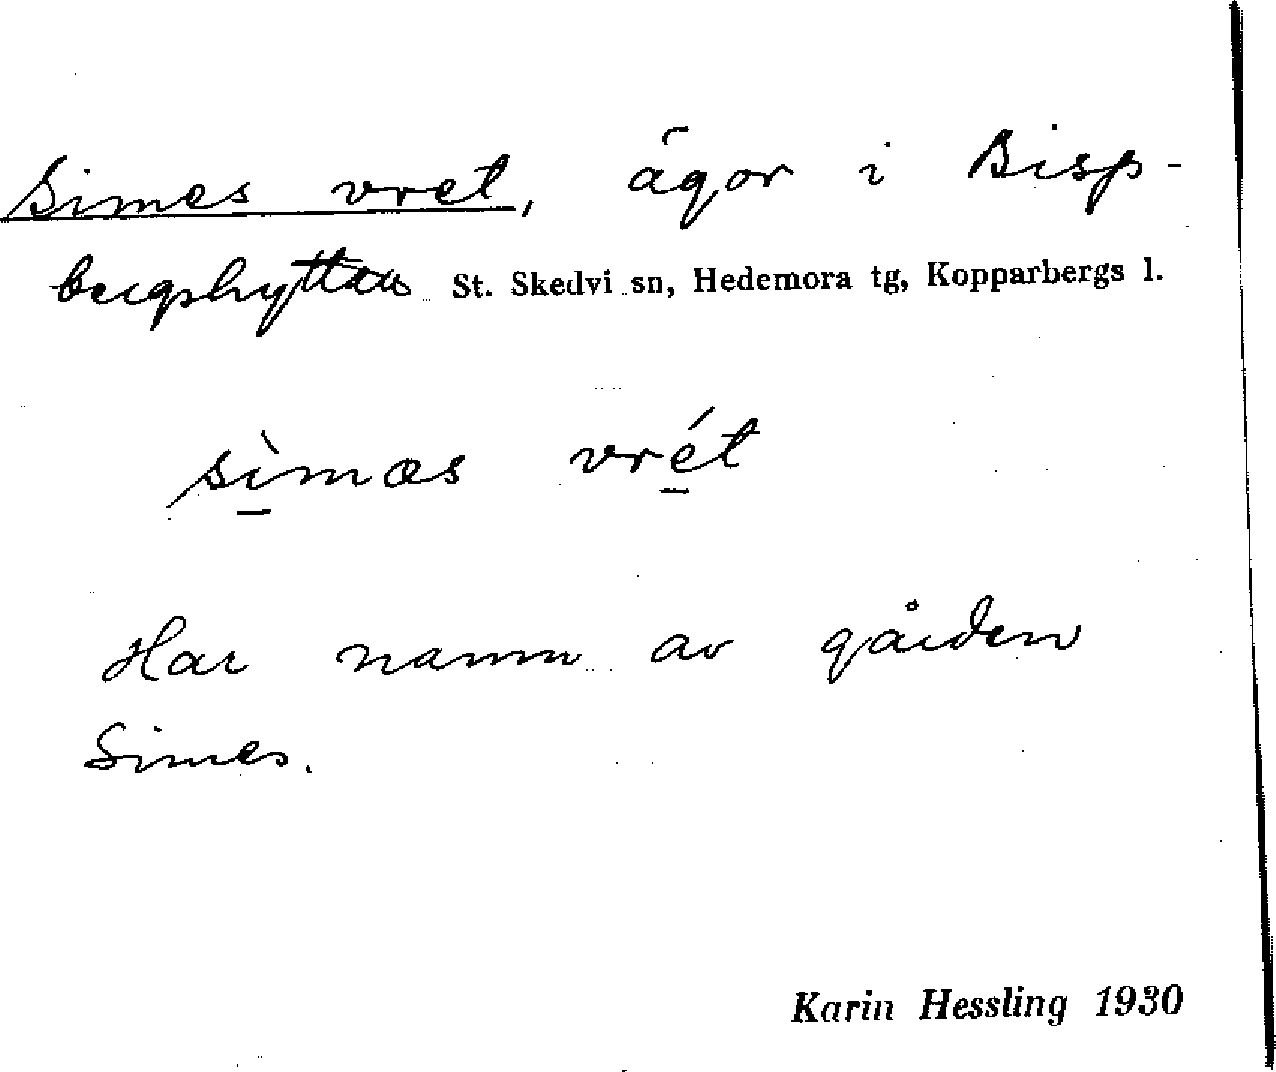 Simes vret, ägor i Bisp-
bergshyttan St. Skedvi sn, Hedemora tg, Kopparbergs l.
sìmæs vrét
Har namn av gården
Simes.
Karin Hessling 1930